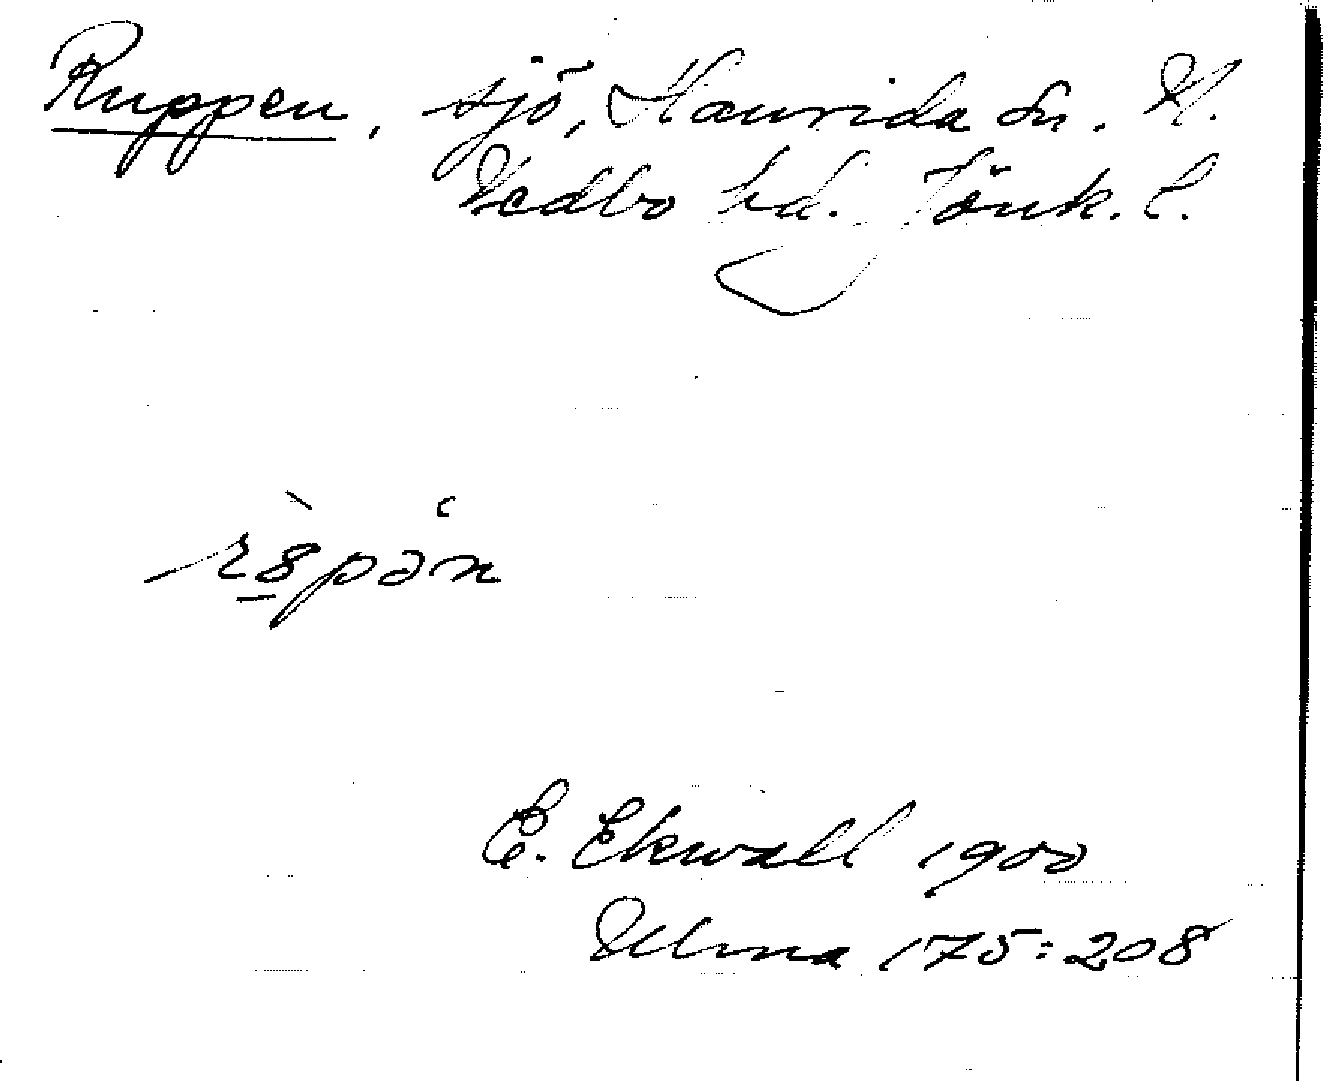 Ruppen, sjö, Haurida sn. N.
Vedbo hd. Jönk. l.
r8̲̀pə‘n
E. Ekwall 1900
Ulma 175:208